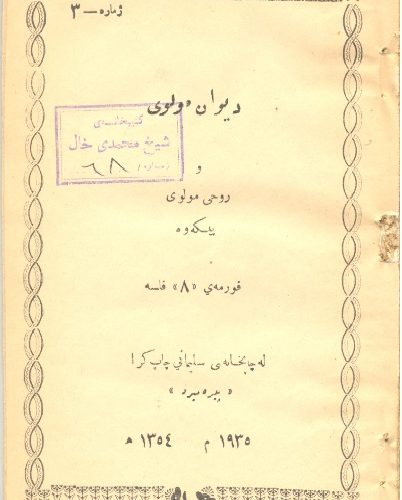 ژماره — ٣
دیوان مولوی
کتێبخانەی
شیخ محمدی خال
ژمارە / ٦٨
و
روحی مولوی
پیکەوە
فورمەی «٨» فلسە
لە چاپخانەی سلیمانی چاپ کرا
« پیرەمیرد »
١٩٣٥ م ١٣٥٤ ھ